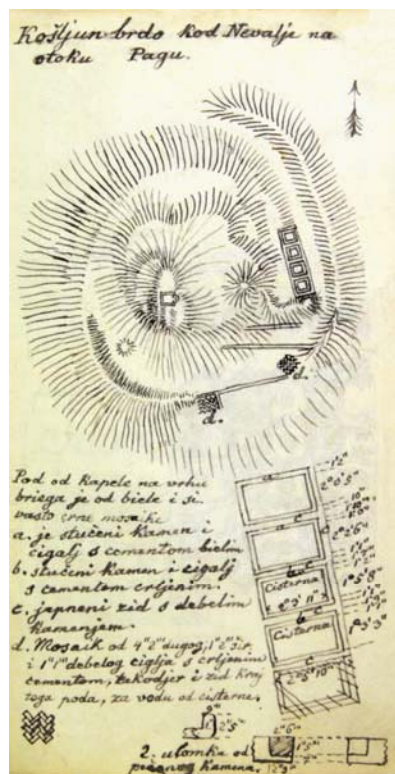 Košljun brdo kod Nevalje na
otoku Pagu.
d.
d.
Pod od kapele na vrhu
briega je od biele i si-
vasto črne mosaike
a. je stučeni kamen i
cigalj s cementom bielim
b. stučeni kamen i cigalj
s cementom crljenim.
c. japneni zid s debelim
kamenjem.
d. Mosaik od 4" 2''' dugog, 1" 2''' šir.
i 1" 1''' debelog ciglja s crljenim
cementom, takodjer i zid kraj
toga poda, za vodu od cisterne.
a
1' 2"
2° 0' 5"
10"
a c
c
2° 2' 6"
b c
Cisterna
2° 3' 11"
1° 5' 8"
b c
Cisterna
1° 3' 3"
c
2° 5' 10"
9"
2' 5"
2. ulomka od
pješčanog kamena.
2' 6"
1' 5"
7"